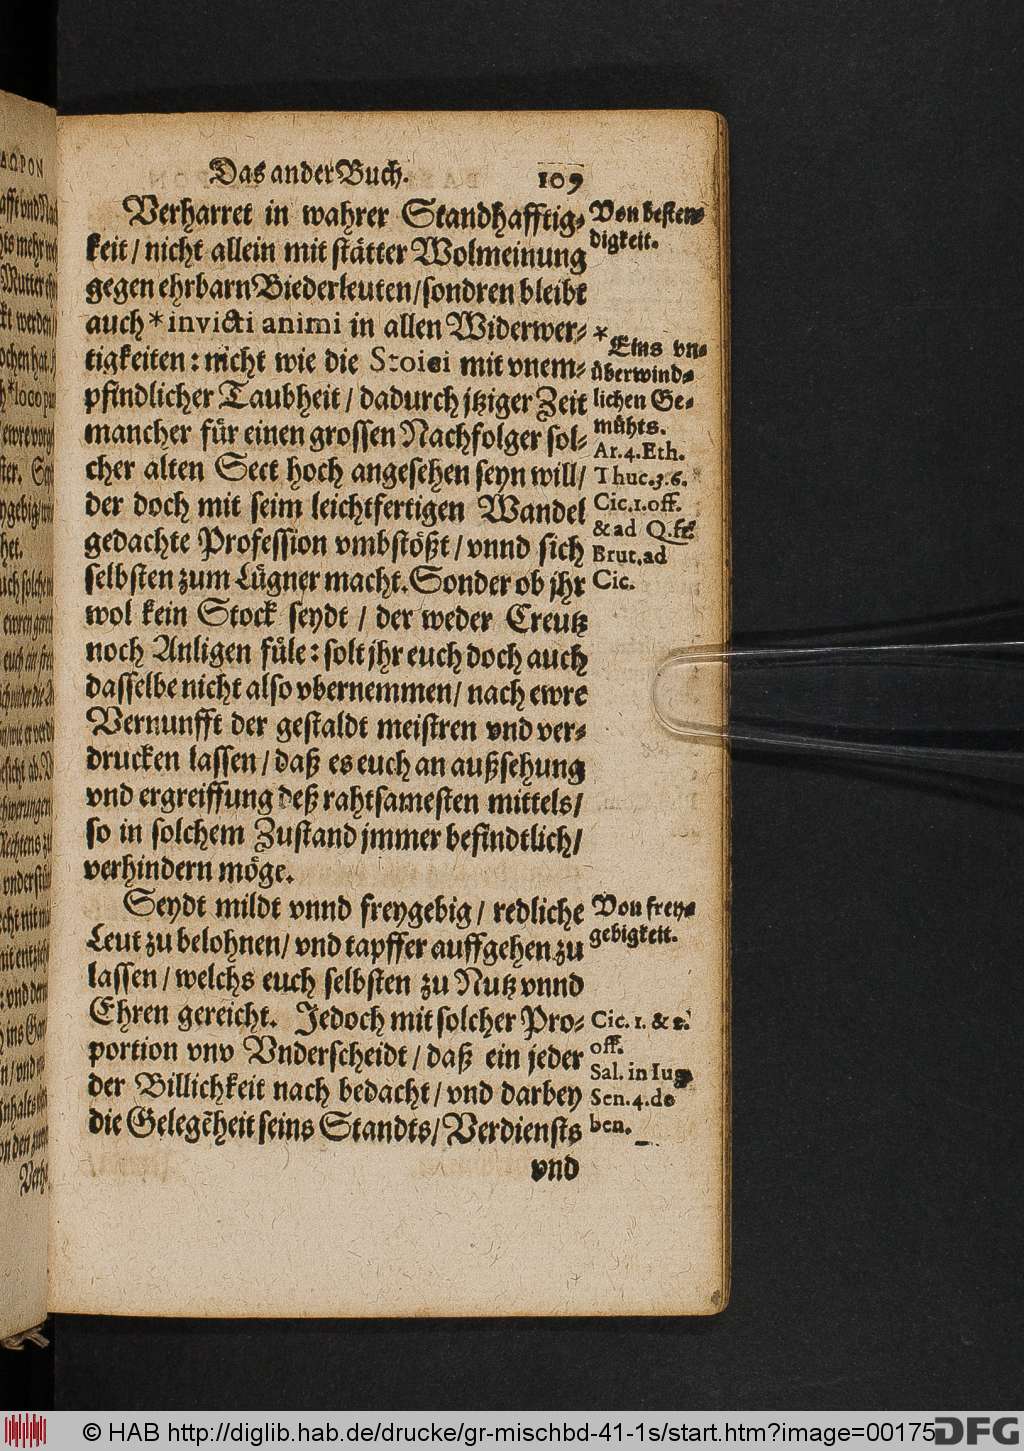 Das ander Buch. 109
Verharret in wahrer Standhafftig-
keit / nicht allein mit stätter Wolmeinung
gegen ehrbarn Biederleuten / sondren bleibt
auch * invicti animi in allen Widerwer-
tigkeiten : nicht wie die Stoici mit vnem-
pfindlicher Taubheit / dadurch jtziger Zeit
mancher für einen grossen Nachfolger sol-
cher alten Sect hoch angesehen seyn will /
der doch mit seim leichtfertigen Wandel
gedachte Profession vmbstößt / vnnd sich
selbsten zum Lügner macht. Sonder ob jhr
wol kein Stock seydt / der weder Creutz
noch Anligen füle : solt jhr euch doch auch
dasselbe nicht also vbernemmen / nach ewre
Vernunfft der gestaldt meistren vnd ver-
drucken lassen / daß es euch an außsehung
vnd ergreiffung deß rahtsamesten mittels /
so in solchem Zustand jmmer befindtlich /
verhindern möge.
Seydt mildt vnnd freygebig / redliche
Leut zu belohnen / vnd tapffer auffgehen zu
lassen / welchs euch selbsten zu Nutz vnnd
Ehren gereicht. Jedoch mit solcher Pro-
portion vnv Vnderscheidt / daß ein jeder
der Billichkeit nach bedacht / vnd darbey
die Gelegẽheit seins Standts / Verdiensts
vnd
Von besten-
digkeit.
* Eins vn-
überwind-
lichen Ge-
mühts.
Ar. 4. Eth.
Thuc. 3. 6.
Cic. 1. off.
& ad Q. fr.
Brut. ad
Cic.
Von frey-
gebigkeit.
Cic. 1. & 2.
off.
Sal. in Iug.
Sen. 4. de
ben.
ΔΩΡΟΝ
© HAB http://diglib.hab.de/drucke/gr-mischbd-41-1s/start.htm?image=00175
DFG